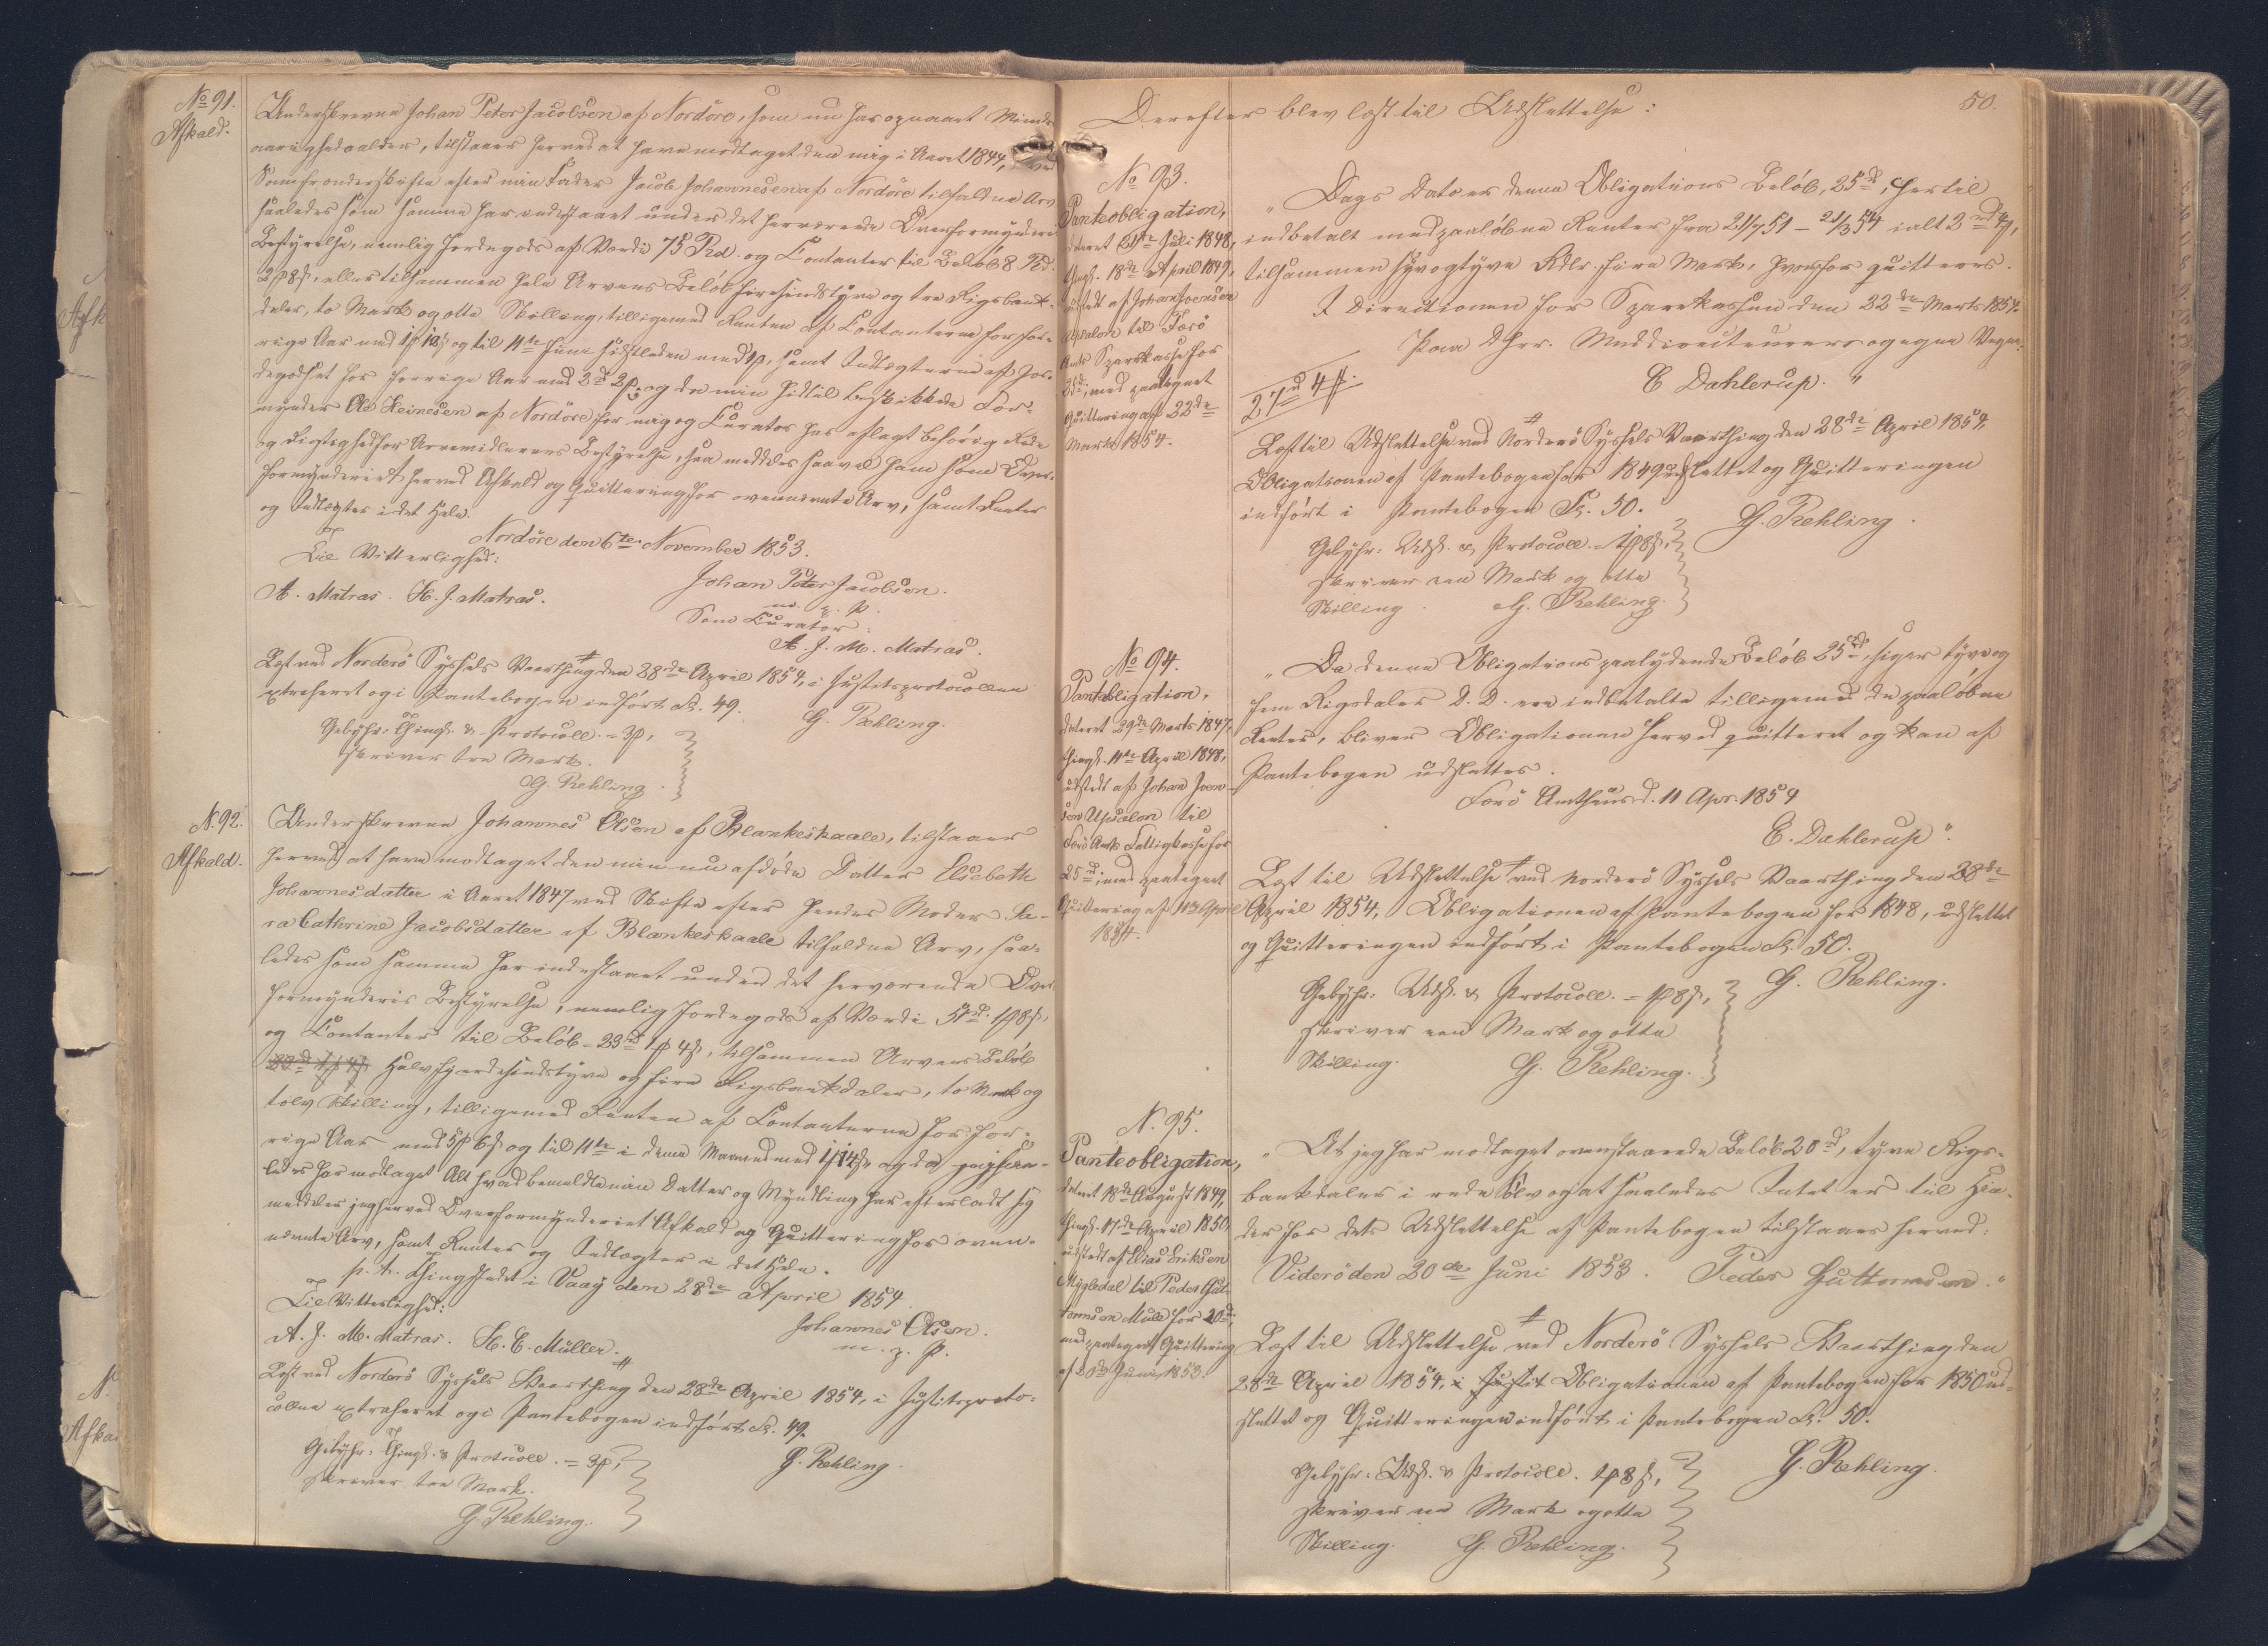 No 91.
Afkald.
Underskrevne Johan Peter Jacobsen af Nordöre, som nu har opnaaet Minde-
aarighedsalder, tilstaaer herved at have modtaget den mig i Aaret 1844, ved
Samfrændeskifte efter min Fader Jacob Johannesen af Nordöre tilfaldne Arv
saaledes som samme har indestaaet under det herværende Overformynderies
Bestyrelse, nemlig Jordegods af Værdi 75 Rd. og Contanter til Beløb 8 Rd.
2 ß 8 s, eller tilsammen hele Arvens Beløb firesindstyve og tre Rigsbank-
daler, to Mark og otte Skilling, tilligemed Renten af Contanterne for for-
rige Aar med og til 11te Juni sidstleden med samt Indtægterne af Jor-
degodset for forrige Aar med og da min hidtil beskikkede For-
mynder Ole Heinesen af Nordöre for mig og Curator har aflagt behørig Rede
og Rigtighed for Arvemidlernes Bestyrelse, saa meddeles saavel ham som Over-
formynderiet herved Afkald og Quittering for ovennævnte Arv, samt Renter
og Indtægter i det Hele.
Nordöre den 6te November 1853.
Til Vitterlighed:
Johan Peter Jacobsen.
A. Matras. H. J. Matras.
m. p. P.
Som Curator:
A. J. M. Matras.
Læst ved Norderö Syssels Vaarthing den 28de April 1854, i Justitsprotocollen
extraheret og i Pantebogen indført Fol. 49.
G. Rehling.
Gebyhr: Thingl. & Protocoll. = 3 ß,
skriver tre Mark.
G. Rehling.
N. 92.
Afkald.
Underskrevne Johannes Olsen af Blankeskaale, tilstaaer
herved at have modtaget den min nu afdøde Datter Elsebeth
Johannesdatter i Aaret 1847 ved Skifte efter hendes Moder Sa-
ra Cathrine Jacobsdatter af Blankeskaale tilfaldne Arv, saa-
ledes som samme har indestaaet under det herværende Over-
formynderies Bestyrelse, nemlig Jordegods af Værdi
og Contanter til Beløb = 23 Rd 1 ß 4 s, tilsammen Arvens Beløb
halvfjerdesindstyve og fire Rigsbankdaler, to Mark og
tolv Skilling, tilligemed Renten af Contanterne for for-
rige Aar med 5 ß 6 s og til 11te i denne Maaned med og da jeg saa-
ledes har modtaget Alt hvad bemeldte min Datter og Myndling har efterladt sig
meddeler jeg herved Overformynderiet Afkald og Quittering for oven-
nævnte Arv, samt Renter og Indtægter i det Hele.
p. t. Thingstedet i Vaag den 28de April 1854.
Til Vitterlighed:
Johannes Olsen.
A. J. M. Matras. H. C. Müller.
m. p. P.
Læst ved Norderö Syssels Vaarthing den 28de April 1854, i Justitsproto-
collen extraheret og i Pantebogen indført Fol. 49.
G. Rehling.
Gebyhr: Thingl. & Protocoll. = 3 ß,
skriver tre Mark.
G. Rehling.
50.
Derefter blev læst til Udslettelse:
No 93.
Panteobligation,
dateret 21de Juli 1848,
thingl. 18de April 1849,
udstedt af Johan Joensen
Upsalon til Færö
Amts Sparekasse for
25 Rd, med paategnet
Quittering af 22de
Marts 1854.
"Dags Dato er denne Obligations Beløb, 25 Rd, hertil
indbetalt med paaløbne Renter fra 21/7 51 – 21/3 54 ialt 2 Rd 4 ß,
tilsammen syvogtyve Rdlr. fire Mark, hvorfor quitteres.
I Directionen for Sparekassen den 22de Marts 1854.
Paa DHrr. Meddirecteurers og egne Vegne.
E Dahlerup."
27 Rd 4 ß.
Læst til Udslettelse ved Norderö Syssels Vaarthing den 28de April 1854.
Obligationen af Pantebogen for 1849 udslettet og Quitteringen
indført i Pantebogen Fol. 50.
G. Rehling.
Gebyhr: Udsl. & Protocoll. = 1 ß 8 s,
skriver een Mark og otte
Skilling. G. Rehling.
No 94.
Panteobligation,
dateret 29de Marts 1847,
thingl. 11te April 1848,
udstedt af Johan Joen-
sen Upsalon til
Færö Amts Fattigkasse for
25 Rd, med paategnet
Quittering af 11te April
1854.
"Da denne Obligations paalydende Beløb 25 Rd, siger tyve og
fem Rigsdaler D. D. ere indbetalte tilligemed de paaløbne
Renter, bliver Obligationen herved quitteret og kan af
Pantebogen udslettes.
Færö Amthuus d. 11 Apr. 1854
E. Dahlerup".
Læst til Udslettelse ved Norderö Syssels Vaarthing den 28de
April 1854, Obligationen af Pantebogen for 1848, udslettet
og Quitteringen indført i Pantebogen Fol. 50.
G. Rehling.
Gebyhr: Udsl. & Protocoll. = 1 ß 8 s,
skriver een Mark og otte
Skilling. G. Rehling.
N. 95.
Panteobligation,
dateret 18de August 1849,
thingl. 17de April 1850,
udstedt af Elias Eriksen
Mygledal til Peder Gut-
tormsen Mule for 20 Rd,
med paategnet Quittering
af 20de Juni 1853.
"At jeg har modtaget ovenstaaende Beløb 20 Rd, tyve Rigs-
bankdaler i rede Sølv og at saaledes Intet er til Hin-
der for dets Udslettelse af Pantebogen tilstaaes herved.
Viderö den 20de Juni 1853. Peder Guttormsen."
Læst til Udslettelse ved Norderö Syssels Vaarthing den
28de April 1854, i Justit Obligationen af Pantebogen for 1850 ud-
slettet og Quitteringen indført i Pantebogen Fol. 50.
G. Rehling.
Gebyhr: Udsl. & Protocoll. 1 ß 8 s,
skriver en Mark og otte
Skilling. G. Rehling.